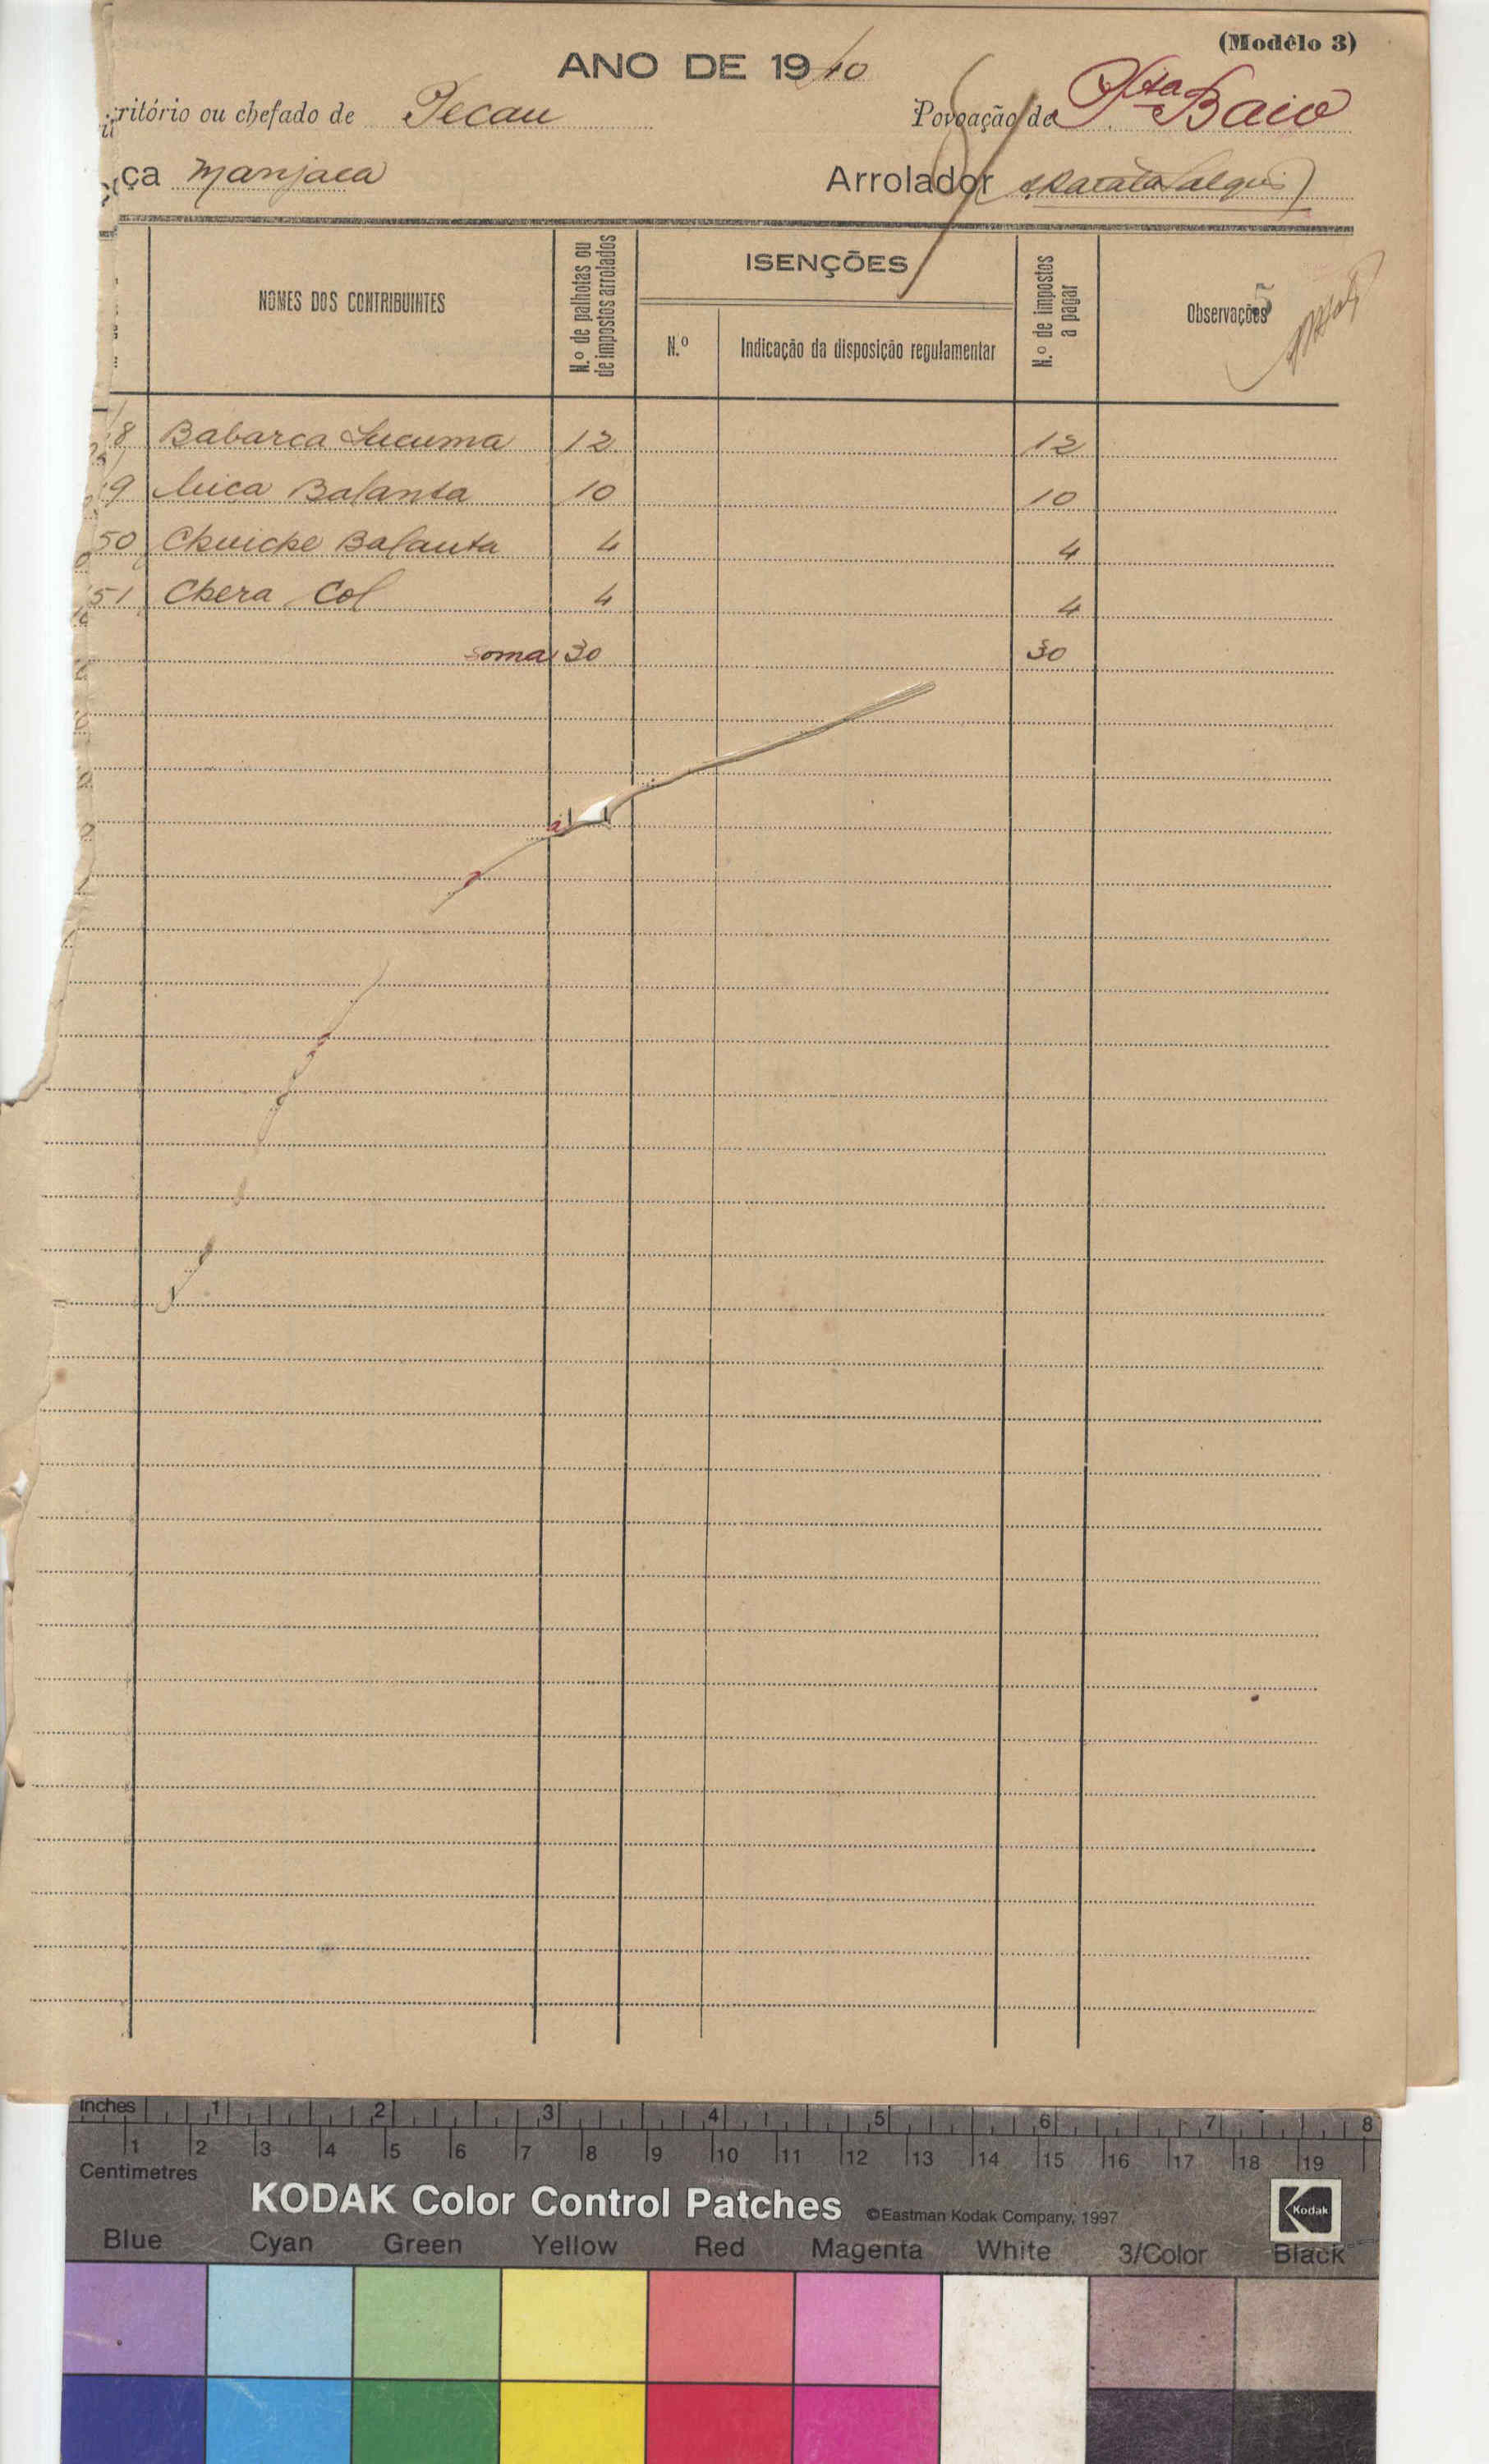 (Modêlo 3)
ANO DE 1940
ritório ou chefado de Pecau
Povoação de Pta Baio
ça Manjaca
Arrolador
NOMES DOS CONTRIBUINTES
N.º de palhotas ou de impostos arrolados
ISENÇÕES
N.º
Indicação da disposição regulamentar
N.º de impostos a pagar
Observações
8 Babarca Lucuma 12 12
9 Luica Balanta 10 10
50 Chuiche Balanta 4 4
51 Chera Col 4 4
Soma 30 30
Inches 1 2 3 4 5 6 7 8
1 2 3 4 5 6 7 8 9 10 11 12 13 14 15 16 17 18 19
Centimetres
KODAK Color Control Patches ©Eastman Kodak Company, 1997 Kodak
Blue Cyan Green Yellow Red Magenta White 3/Color Black